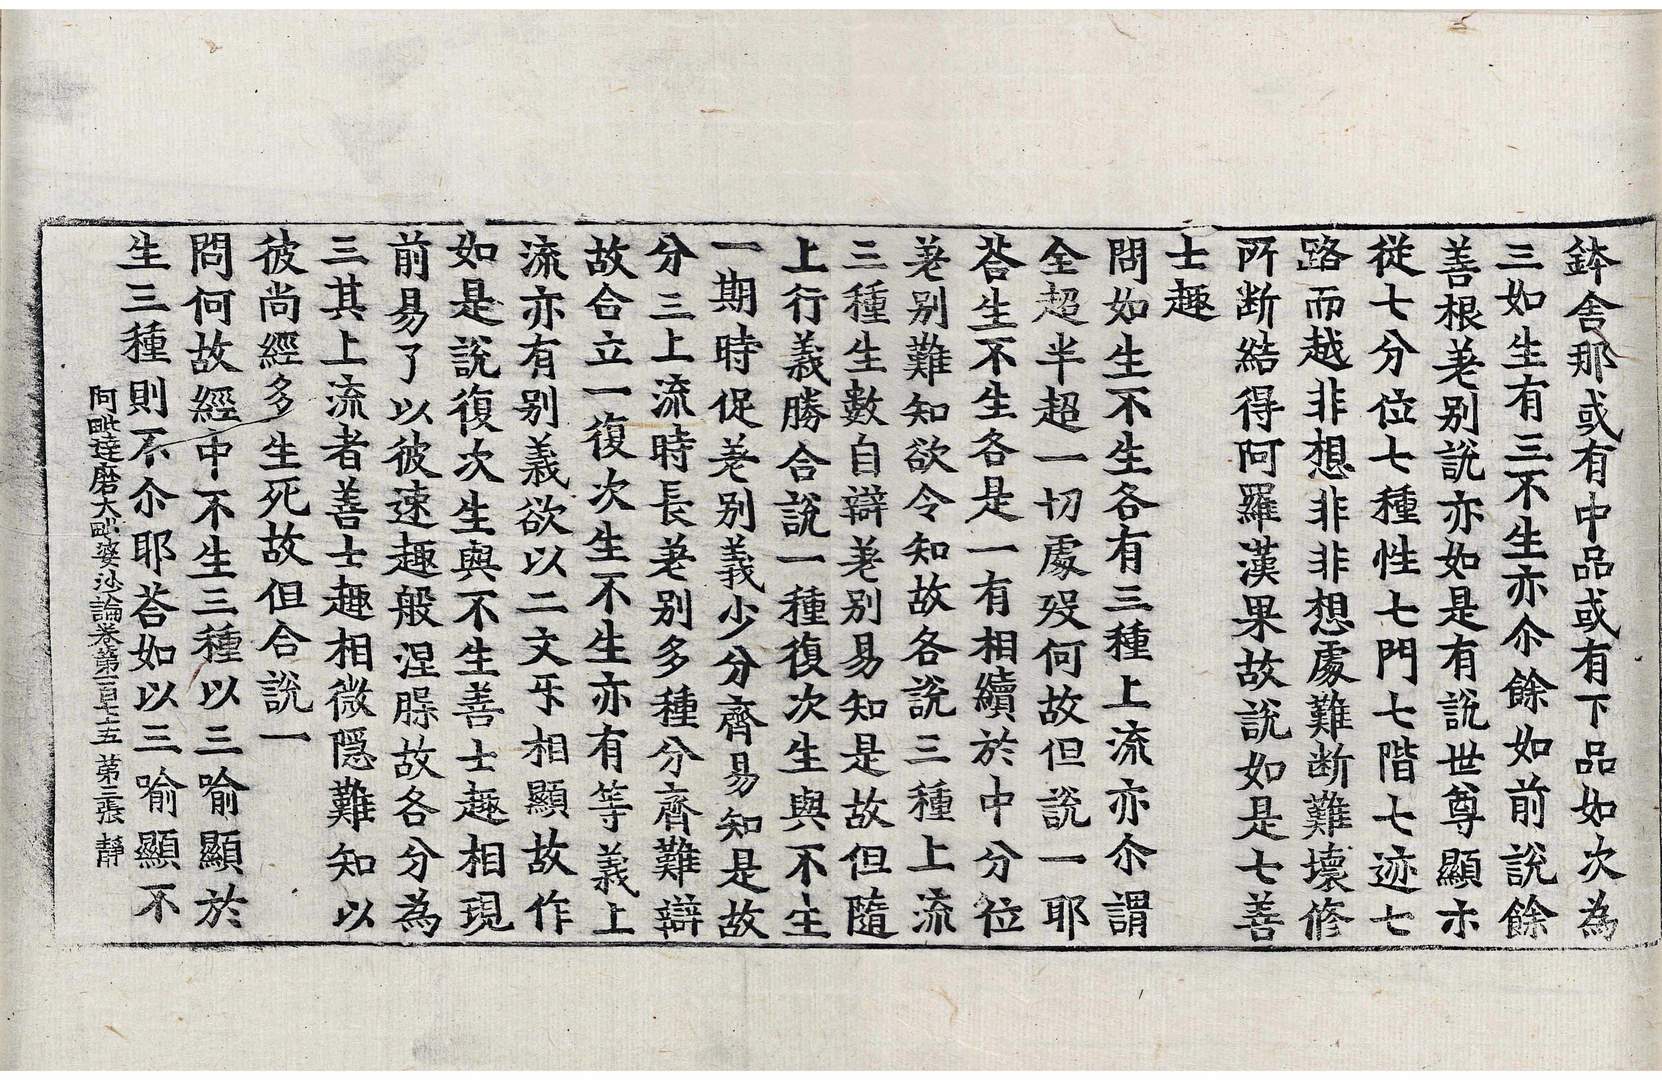 鉢舍那或有中品或有下品如次為
三如生有三不生亦尒餘如前說餘
善根差別說亦如是有說世尊顯示
從七分位七種性七門七階七迹七
路而越非想非非想處難斷難壞修
所斷結得阿羅漢果故說如是七善
士趣
問如生不生各有三種上流亦尒謂
全超半超一切處歿何故但說一耶
荅生不生各是一有相續於中分位
差別難知欲令知故各說三種上流
三種生數自辯差別易知是故但隨
上行義勝合說一種復次生與不生
一期時促差別義少分齊易知是故
分三上流時長差別多種分齊難辯
故合立一復次生不生亦有等義上
流亦有別義欲以二文互相顯故作
如是說復次生與不生善士趣相現
前易了以彼速趣般涅槃故各分為
三其上流者善士趣相微隱難知以
彼尚經多生死故但合說一
問何故經中不生三種以三喻顯於
生三種則不尒耶荅如以三喻顯不
阿毗達磨大毗婆沙論卷第一百七十五 第三張 靜